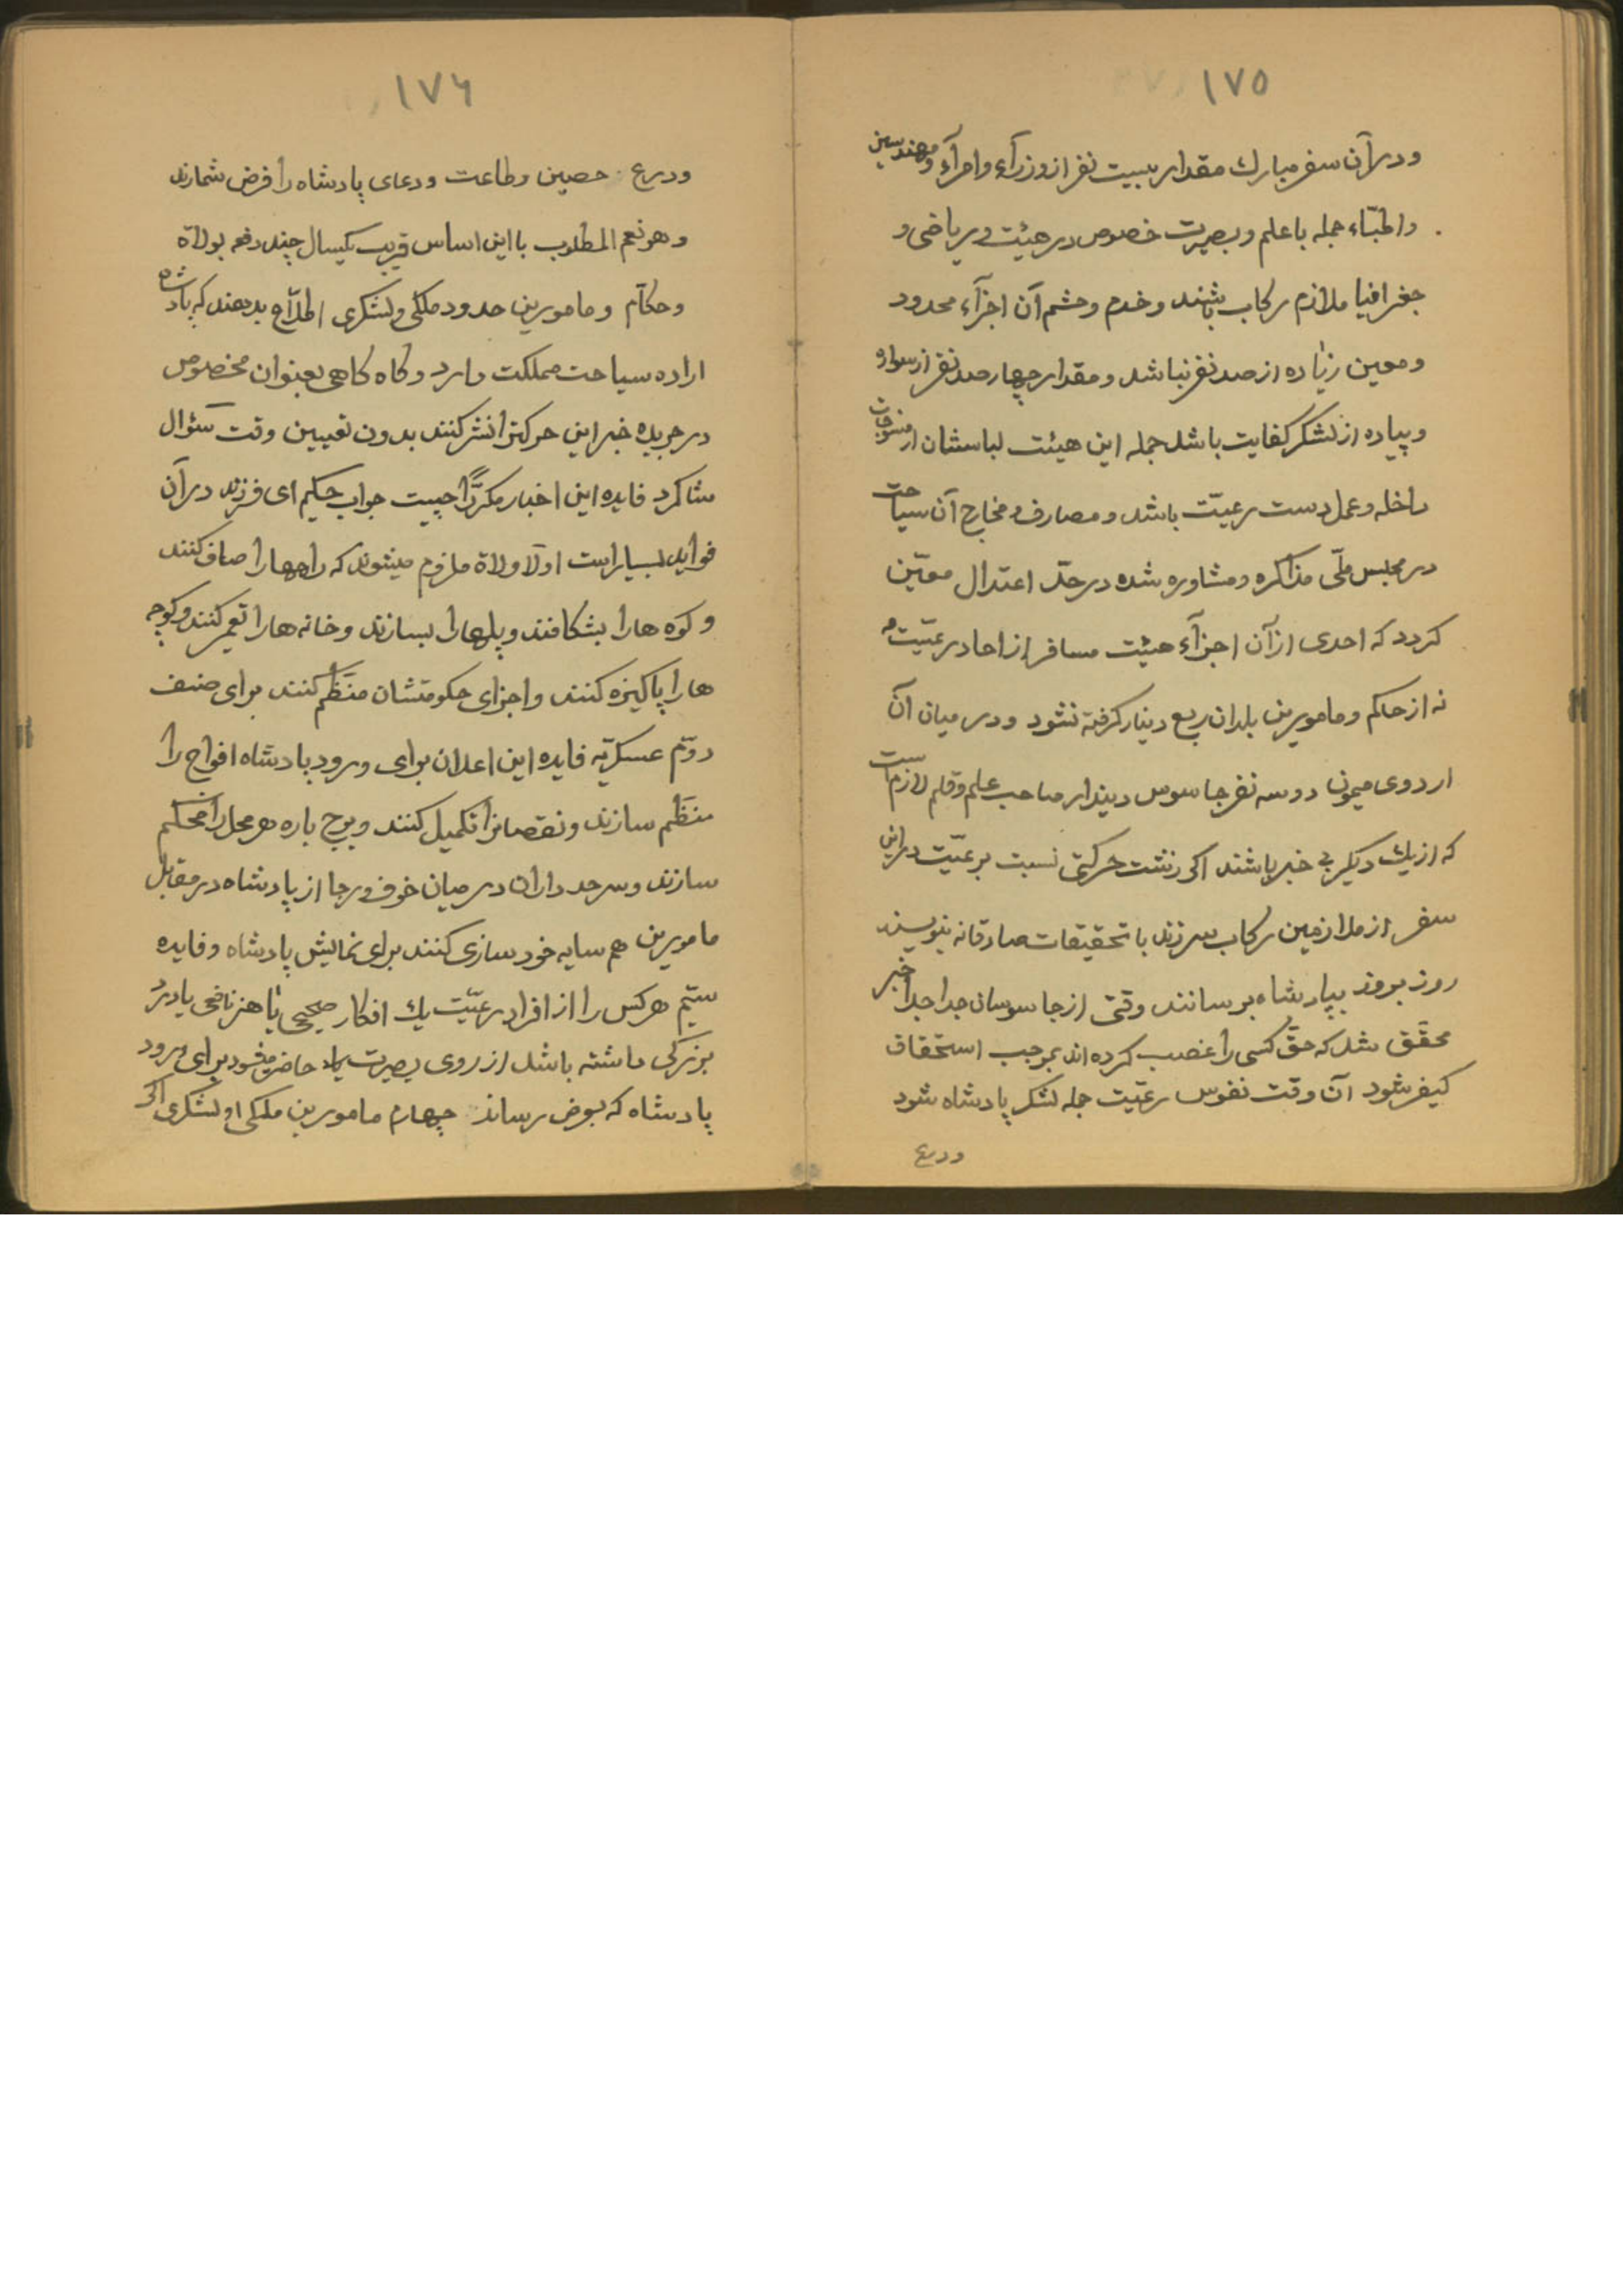 ۱۷۵
ودر آن سفر مبارك مقدار بیست نفر از وزرآء وامرآء ومهندسین
واطبّاء جمله باعلم وبصیرت خصوص در هیئت وریاضی و
جغرافیا ملازم رکاب باشند وخدم وحشم آن اجزآء محدود
ومعین زیاده از صد نفر نباشد ومقدار چهار صد نفر از سواره
وپیاده از لشکر کفایت باشد جمله این هیئت لباسشان از منسوجات
داخله وعمل دست رعیّت باشد ومصارف ومخارج آن سیاحت
در مجلس ملّی مذاکره ومشاوره شده در حدّ اعتدال معیّن
کردد که احدی از آن اجزآء هیئت مسافر از احاد رعیّت
نه از حاکم ومامورین بلدان ربع دینار کرفته نشود ودر میان آن
اردوی میمون دوسه نفر جاسوس دیندار صاحب علم وقلم لازمست
که از یك دیکر بی خبر باشند اکر زشت حرکتی نسبت برعیّت در این
سفر از ملازمین رکاب سرزند با تحقیقات صادقانه بنویسند
روز بروز بپادشاه برسانند وقتی از جاسوسان جدا جدا خبر
محقّق شد که حقّ کسی را غصب کرده اند بموجب استحقاق
کیفر شود آن وقت نفوس رعیّت جمله لشکر پادشاه شود
ودرع
۱۷۶
ودرع حصین وطاعت ودعای پادشاه را فرض شمارند
وهو نعم المطلوب با این اساس قریب یکسال چند دفعه بولاة
وحکّام ومامورین حدود ملکی ولشکری اطلاع بدهند که پادشاه
اراده سیاحت مملکت دارد وکاه کاهی بعنوان مخصوص
در جریده خبر این حرکترا نشر کنند بدون تعیین وقت سؤال
شاکرد فایده این اخبار مکرّراً چیست جواب حکیم ای فرزند در آن
فواید بسیار است اولا ولاة ملزوم میشوند که راهها را صاف کنند
وکوه ها را بشکافند وپلها را بسازند وخانه ها را تعمیر کنند وکوچه
ها را پاکیزه کنند واجزای حکومتشان منظّم کنند برای صنف
دوّم عسکریّه فایده این اعلان برای ورود پادشاه افواج را
منظّم سازند ونقصانرا تکمیل کنند وبرج باره هر محل را محکم
سازند وسرحد داران در میان خوف ورجا از پادشاه در مقابل
مامورین هم سایه خودسازی کنند برای نمایش پادشاه وفایده
سیّم هر کس را از افراد رعیّت یك افکار صحیحی یا هنر نافعی یا درد
بزرکی داشته باشد از روی بصیرت حاضر میشود برای ورود
پادشاه که بعرض رساند چهارم مامورین ملکی او لشکری اکر